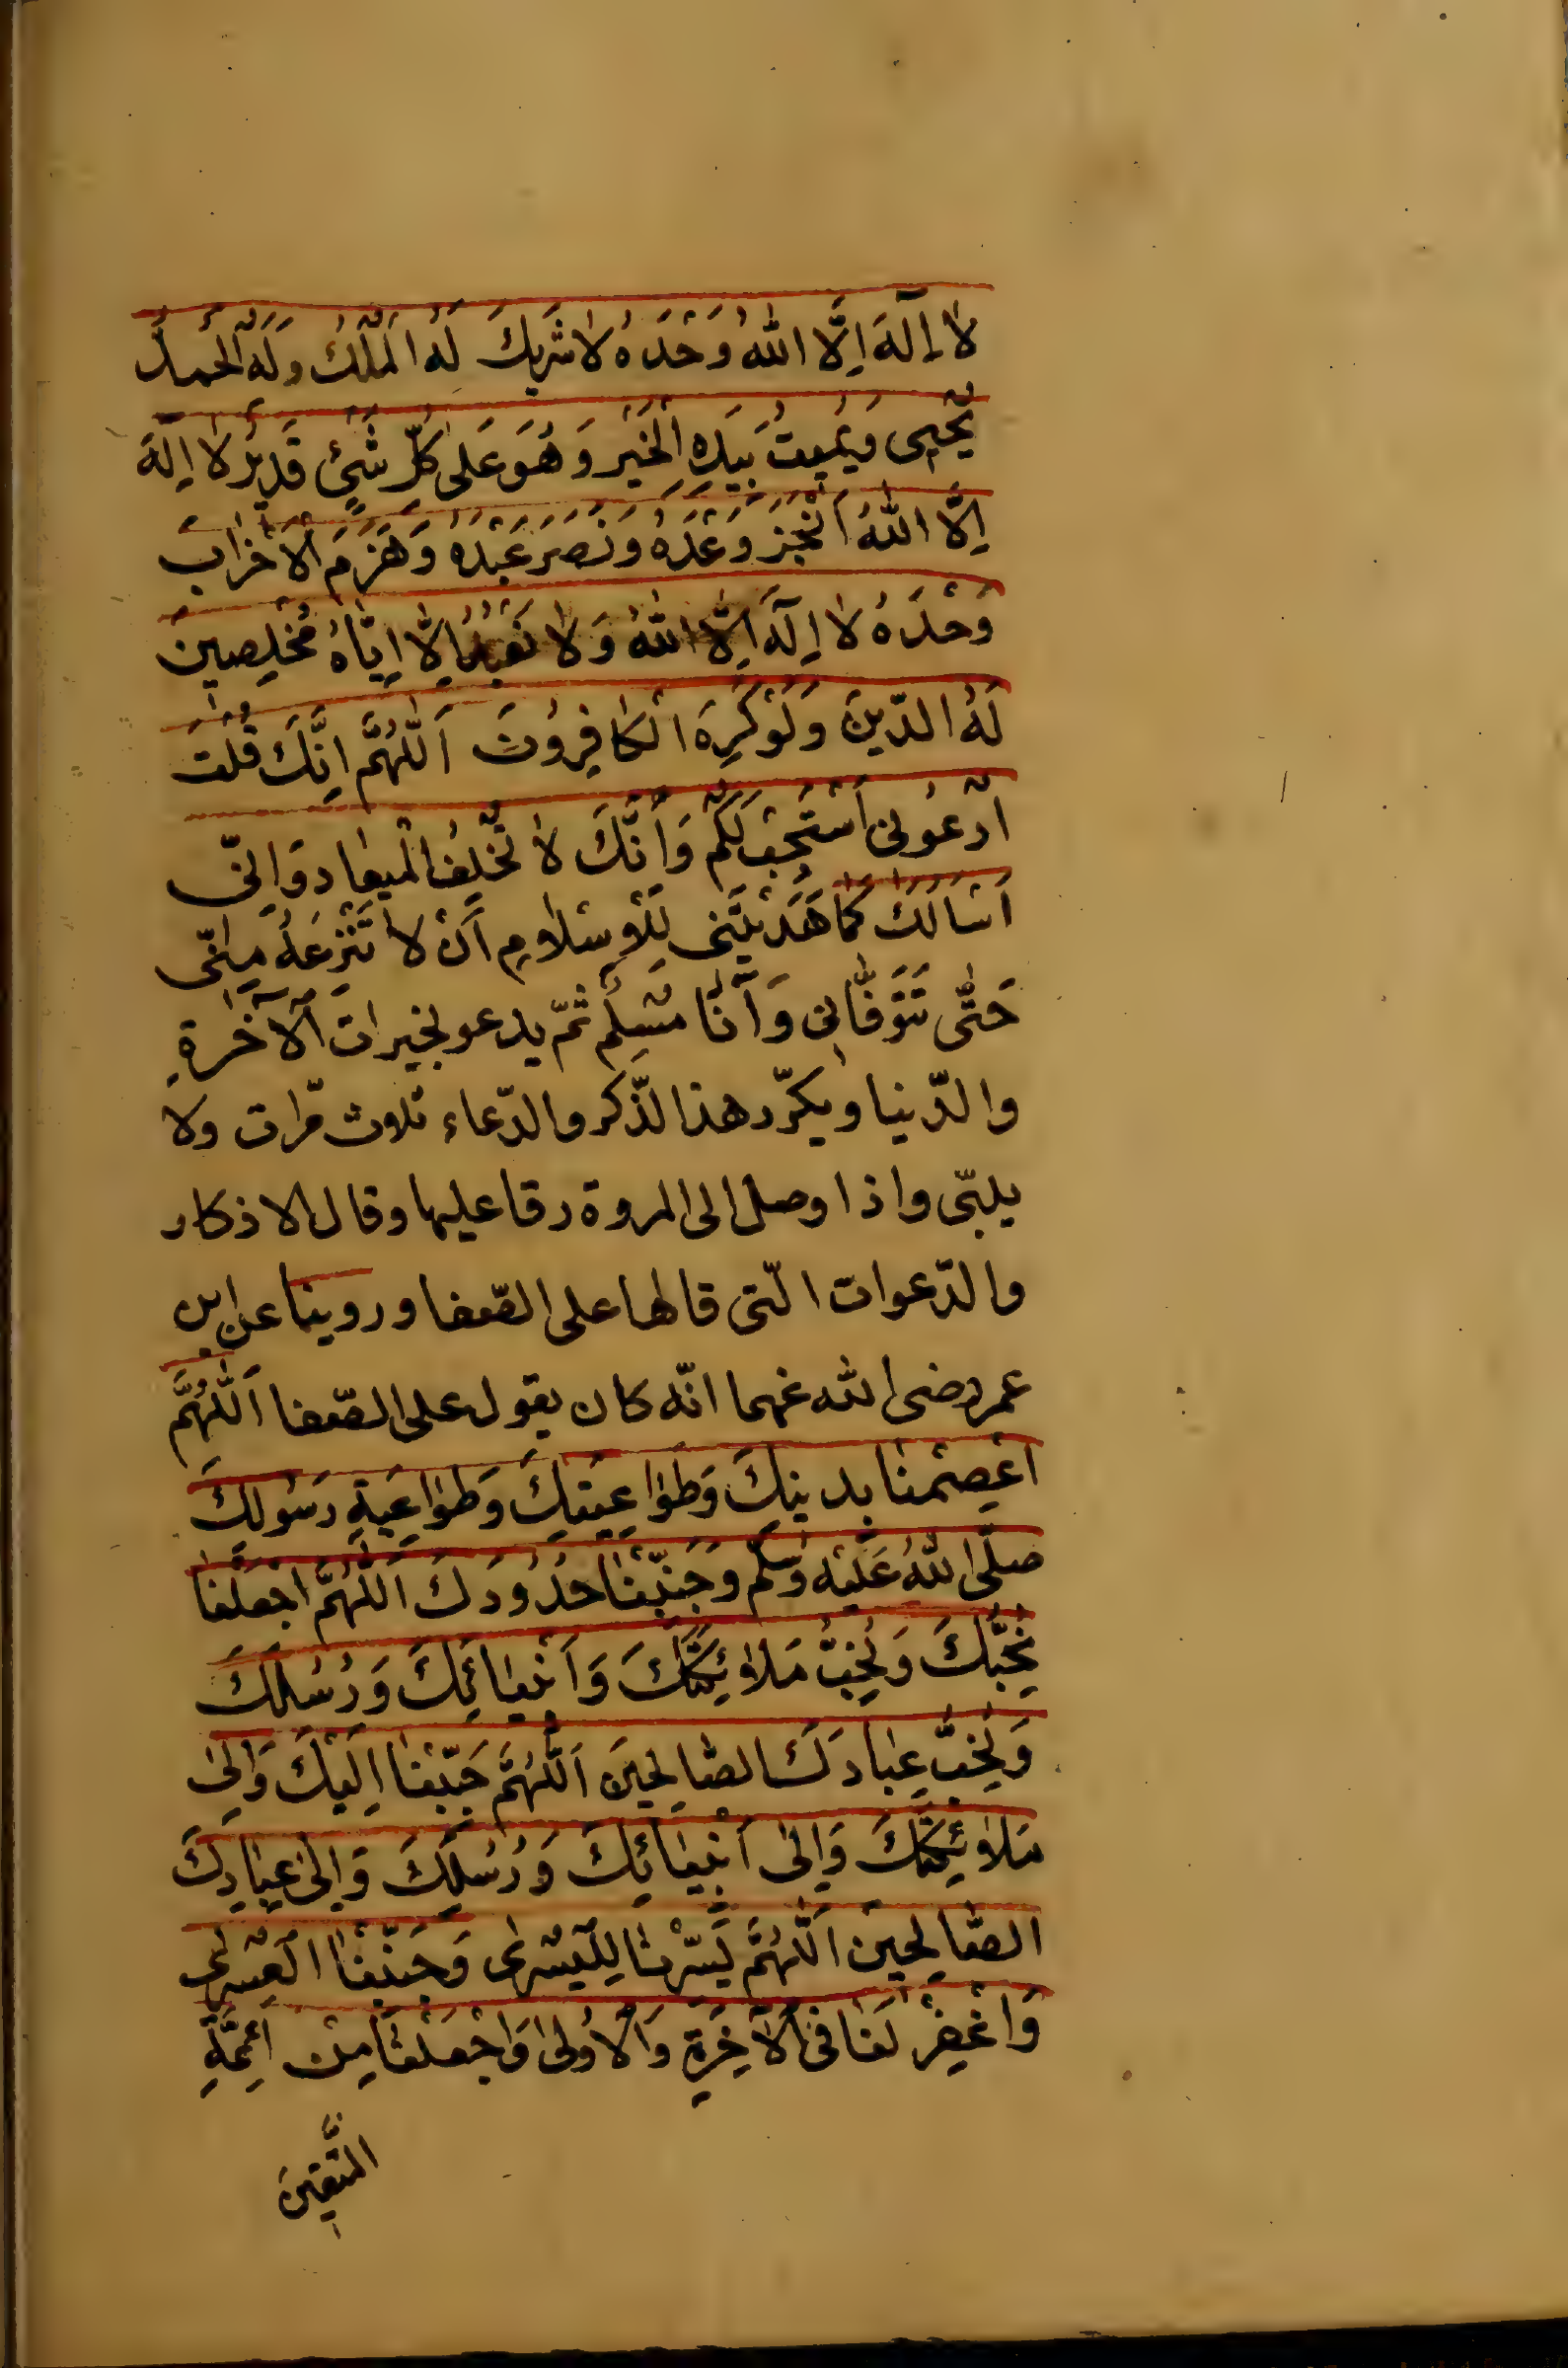 لا إِلَهَ اِلَّا اللهُ وَحْدَهُ لا شَرِيكَ لَهُ الْمُلْكُ وَلَهُ الْحَمْدُ
يُحْيِى وَيُمِيتُ بِيَدِهِ الْخَيْرُ وَهُوَ عَلٰى كُلِّ شَىْءٍ قَدِيرٌ لا اِلَهَ
اِلَّا اللهُ اَنْجَزَ وَعْدَهُ وَنَصَرَ عَبْدَهُ وَهَزَمَ الْاَحْزَابَ
وَحْدَهُ لا اِلَهَ اِلَّا اللهُ وَلا نَعْبُدُ اِلَّا اِيَّاهُ مُخْلِصِينَ
لَهُ الدِّينَ وَلَوْ كَرِهَ الْكَافِرُونَ اَللّٰهُمَّ اِنَّكَ قُلْتَ
ادْعُونِى اَسْتَجِبْ لَكُمْ وَاَنَّكَ لا تُخْلِفُ الْمِيعَادَ وَاِنِّى
اَسْاَلُكَ كَمَا هَدَيْتَنِى لِلْاِسْلامِ اَنْ لا تَنْزِعَهُ مِنِّى
حَتّٰى تَتَوَفَّانِى وَاَنَا مُسْلِمٌ ثمّ يدعو بخيرات الْآخِرَةِ
والدّنيا ويكرّر هذا لذّكر والدّعاء ثلاث مرّات ولا
يلبّى واذا وصل الى المروة رقا عليها وقال الاذكار
والدّعوات الّتى قالها على الصّفا وروينا عن ابن
عمر رضى الله عنهما انّه كان يقول على الصّفا اَللّٰهُمَّ
اعْصِمْنَا بِدِينِكَ وَطَوَاعِيَتِكَ وَطَوَاعِيَةِ رَسُولِكَ
صَلَّى اللهُ عَلَيْهِ وَسَلَّمَ وَجَنِّبْنَا حُدُودَكَ اَللّٰهُمَّ اجْعَلْنَا
نُحِبُّكَ وَنُحِبُّ مَلائِكَتَكَ وَاَنْبِيَائَكَ وَرُسُلَكَ
وَنُحِبُّ عِبَادَكَ الصَّالِحِينَ اَللّٰهُمَّ حَبِّبْنَا اِلَيْكَ وَاِلٰى
مَلائِكَتِكَ وَاِلٰى اَنْبِيَائِكَ وَرُسُلِكَ وَاِلٰى عِبَادِكَ
الصَّالِحِينَ اَللّٰهُمَّ يَسِّرْنَا لِلْيُسْرٰى وَجَنِّبْنَا الْعُسْرٰى
وَاغْفِرْ لَنَا فِى الْآخِرَةِ وَالْاُولٰى وَاجْعَلْنَا مِنْ اَئِمَّةِ
الْمُتَّقِينَ